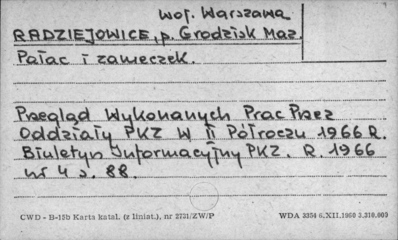 woj. Warszawa
RADZIEJOWICE, p. Grodzisk Maz.
Pałac i zameczek.
Przegląd Wykonanych Prac Przez
Oddziały PKZ W II Półroczu 1966 R.
Biuletyn Informacyjny PKZ. R. 1966
nr 4 s. 88.
CWD - B-15b Karta katal. (z liniat.), nr 2721/ZW/P WDA 3354 6.XII.1960 3.310.000